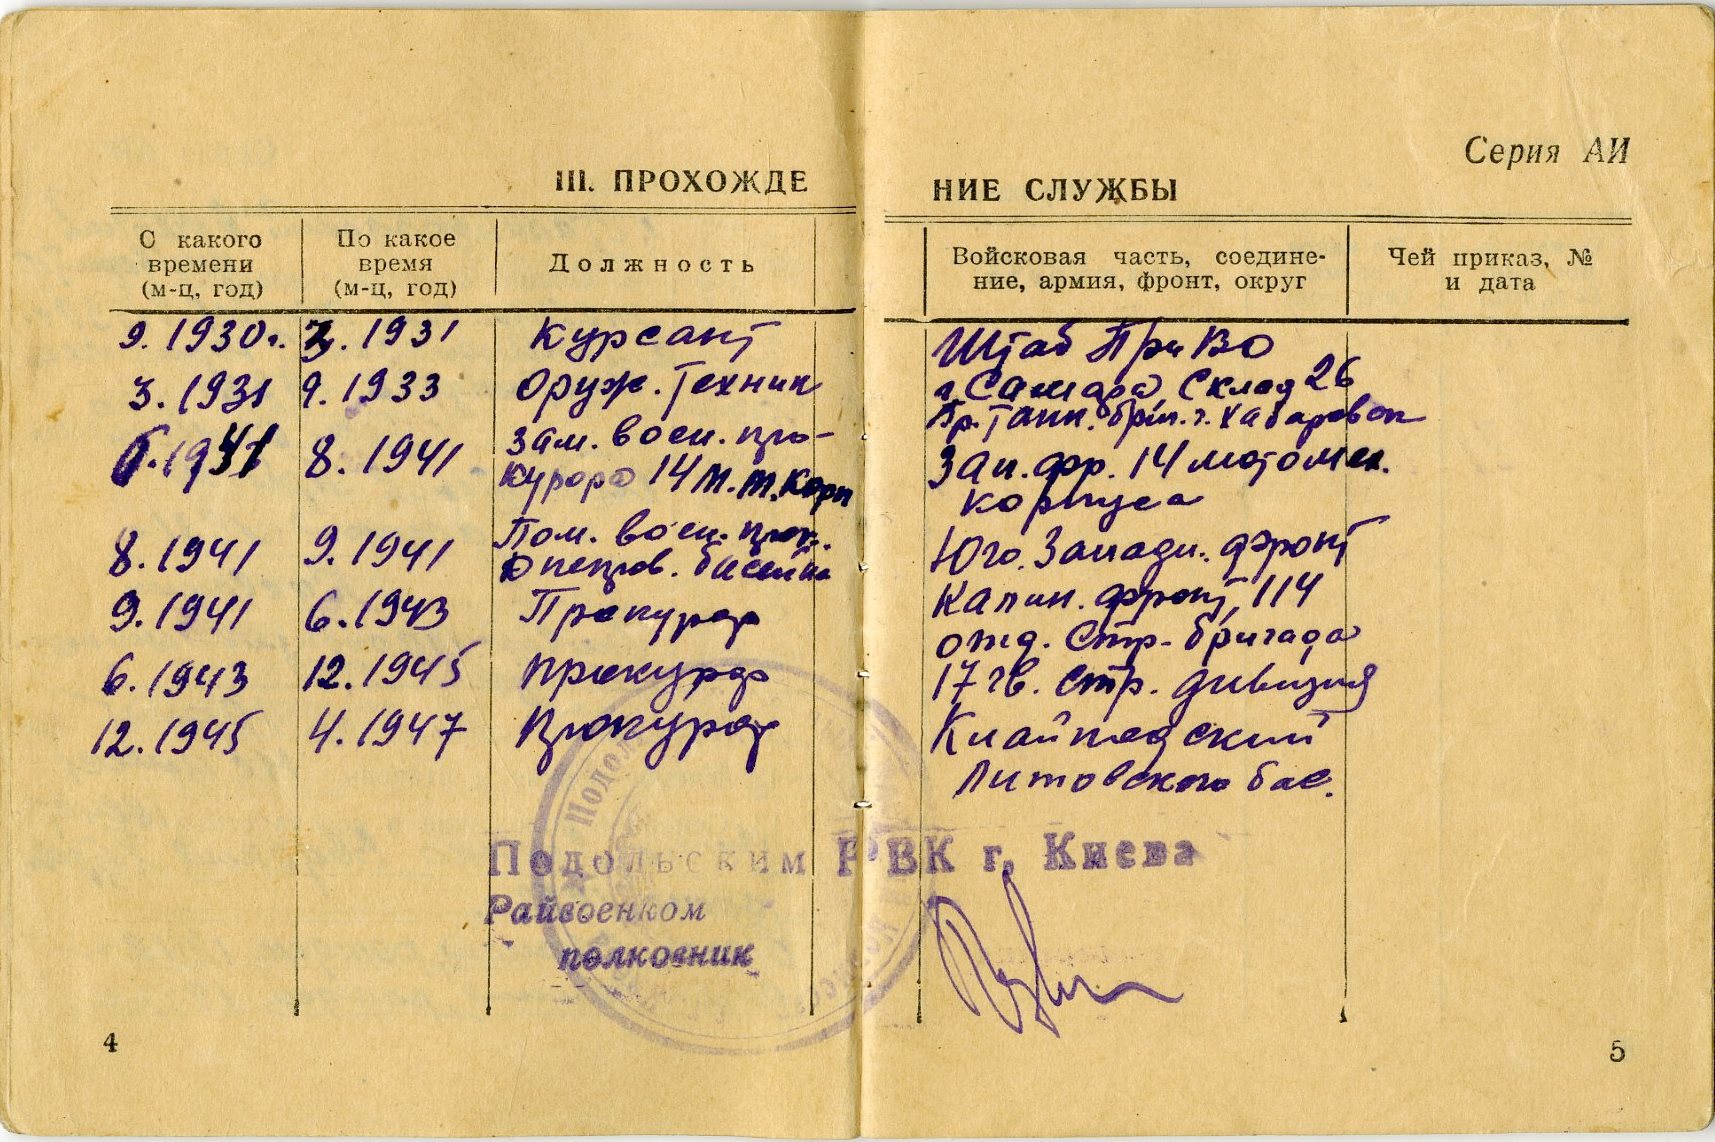 Серия АИ
III. ПРОХОЖДЕ
НИЕ СЛУЖБЫ
С какого времени (м-ц, год)
По какое время (м-ц, год)
Должность
Войсковая часть, соедине-
ние, армия, фронт, округ
Чей приказ, №
и дата
9.1930г. 3.1931 Курсант Штаб ПриВО
3.1931 9.1933 Оруж. Техник г. Самара Склад 26
Тр. Танк. бриг. г. Хабаровск
6.1941 8.1941 Зам. воен. про-
курора 14 М.М. Корп Зап. фр. 14 мотомех.
корпуса
8.1941 9.1941 Пом. воен. прок.
Днепров. басейна Юго. Западн. фронт
9.1941 6.1943 Прокурор Калин. фронт, 114
отд. Стр. бригада
6.1943 12.1945 прокурор 17 гв. стр. дивизия
12.1945 4.1947 Прокурор Клайпедский
Литовского бас.
Подольским РВК г. Киева
Райвоенком
полковник
4
5